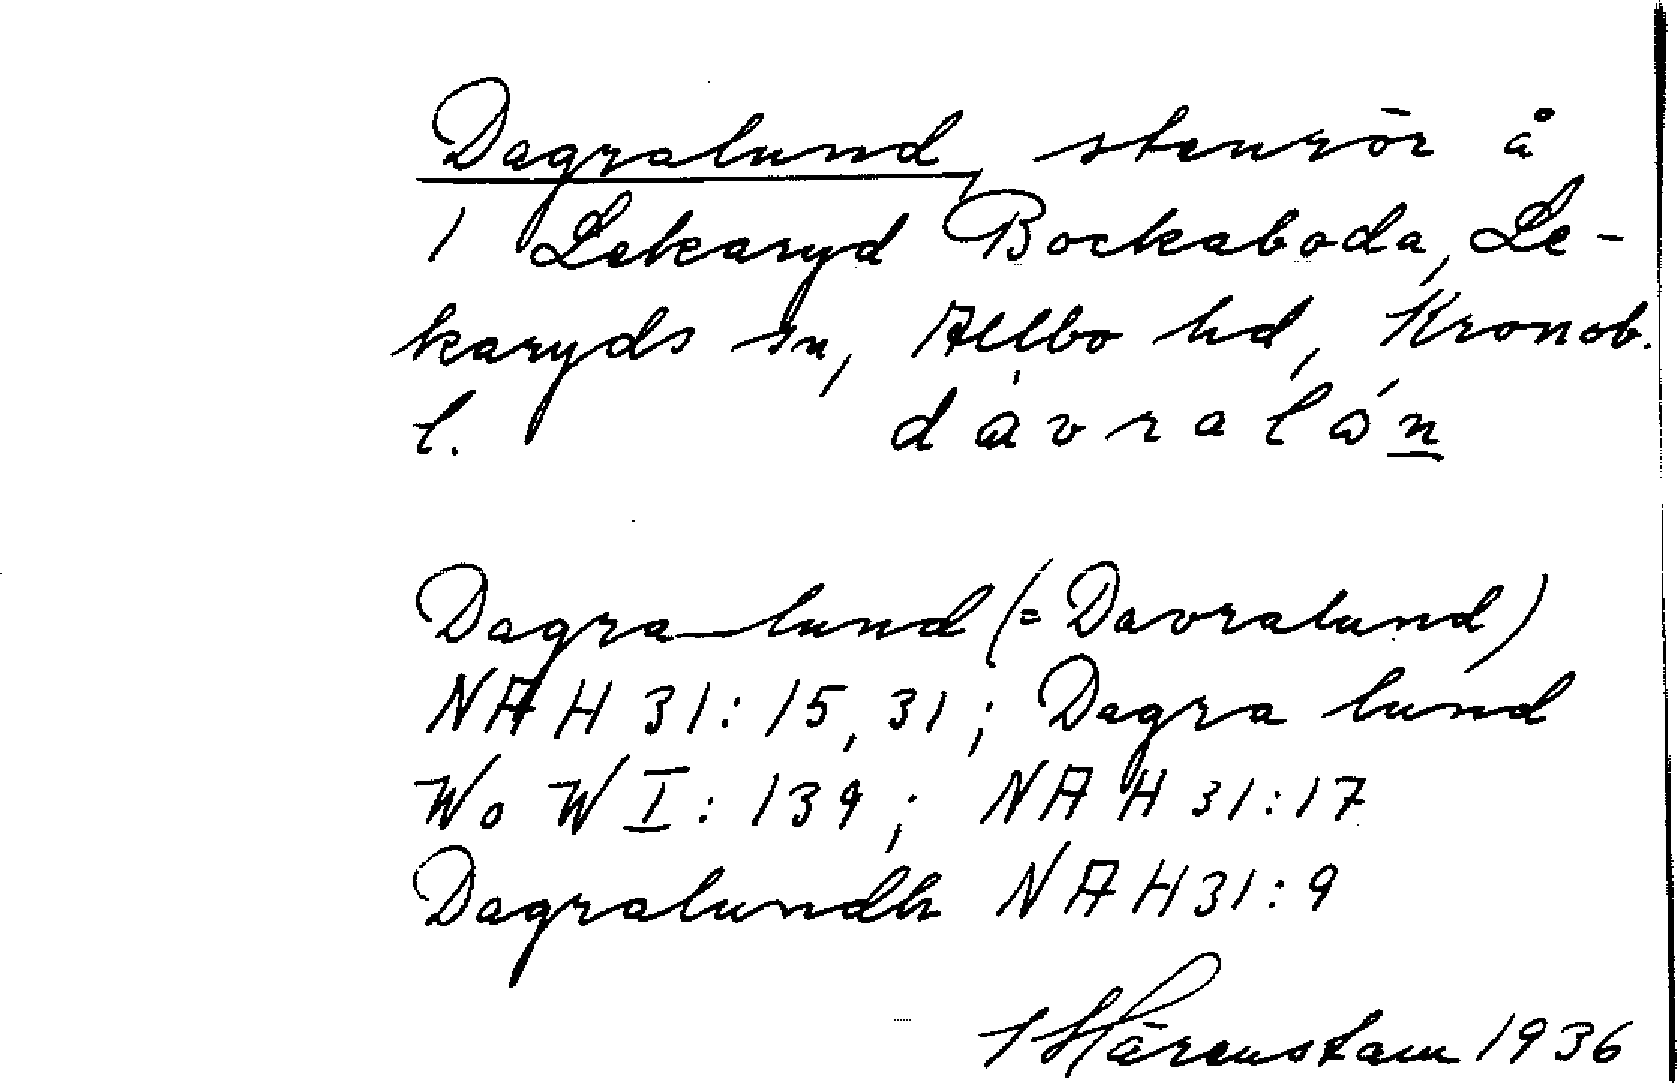 Dagralund, stenrör å
1 Lekaryd Bockaboda, Le-
karyds sn, Allbo hd, Kronob.
l. dávralón
Dagra-lund (= Davralund)
NAH 31: 15, 31; Dagra lund
Wo W I: 139; NAH 31:17
Dagralundh NAH 31:9
Härenstam 1936